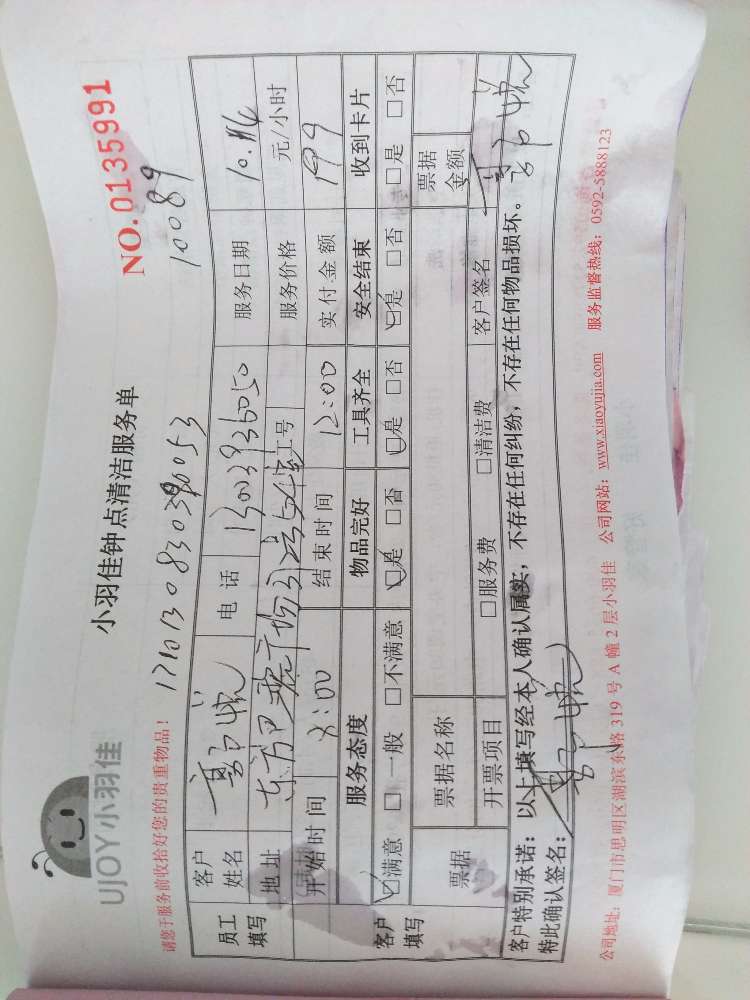 UJOY小羽佳
小羽佳钟点清洁服务单
NO.0135991
请您于服务前收拾好您的贵重物品！ 1710130830390053 10089
员工填写 客户姓名 电话 13003936050 服务日期 10.14
地址 东方巴黎 工号 服务价格 元/小时
开始时间 8:00 结束时间 12:00 实付金额 199
客户填写 服务态度 物品完好 工具齐全 安全结束 收到卡片
☑满意 □一般 □不满意 ☑是 □否 ☑是 □否 ☑是 □否 □是 □否
票据 票据名称 票据金额
开票项目 □服务费 □清洁费 客户签名
客户特别承诺：以上填写经本人确认属实，不存在任何纠纷，不存在任何物品损坏。
特此确认签名：
公司地址：厦门市思明区湖滨东路 319 号 A 幢 2 层小羽佳 公司网站：www.xiaoyujia.com 服务监督热线：0592-5888123